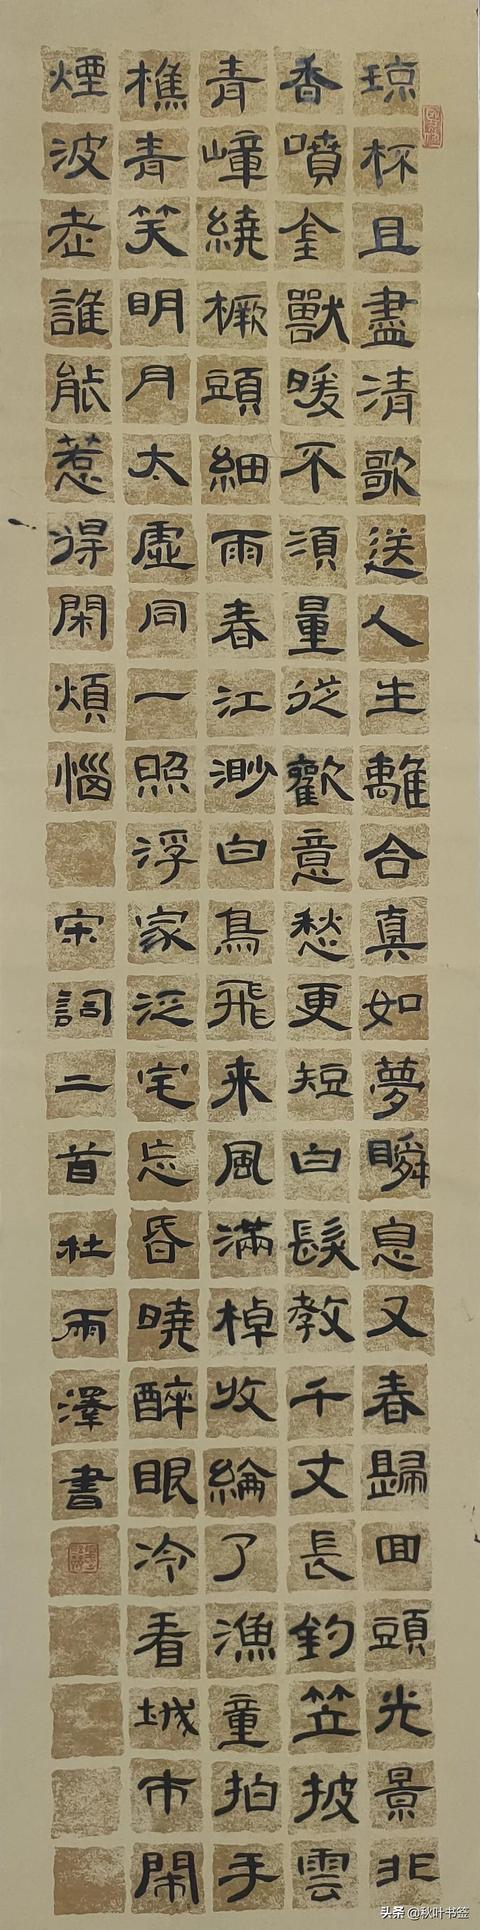 琼杯且盡清歌送人生離合真如夢瞬息又春歸囬頭光景非
香噴金獸暖不須量從歡意愁更短白髮教千丈長釣笠披雲
青嶂繞橛頭細雨春江渺白鳥飛来風滿棹收綸了漁童拍手
樵青笑明月太虛同一照浮家泛宅忘昏曉醉眼冷看城市閑
煙波老誰能惹得閑煩惱 宋詞二首杜雨澤書
头条 @秋叶书签